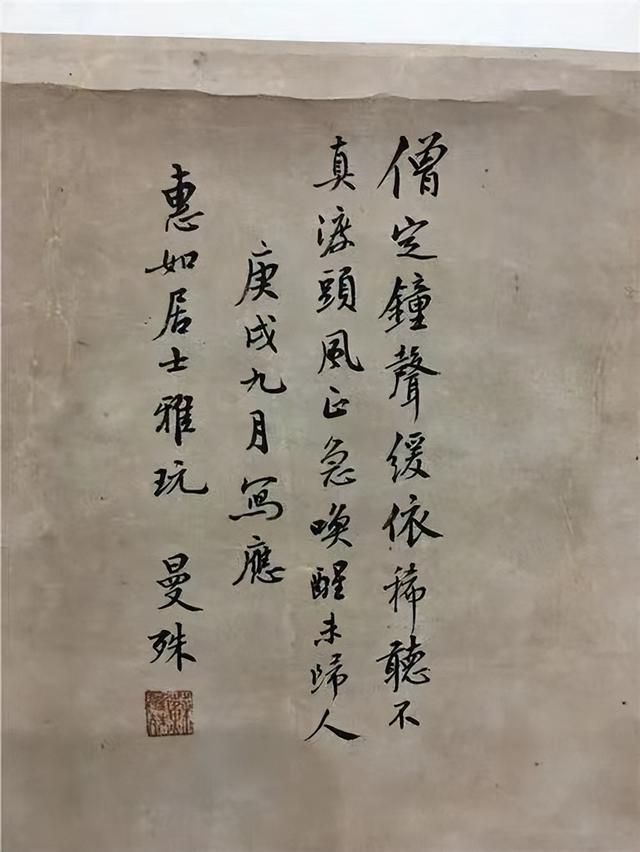 僧定鐘聲緩依稀聽不
真渡頭風正急喚醒未歸人
庚戌九月寫應
惠如居士雅玩 曼殊